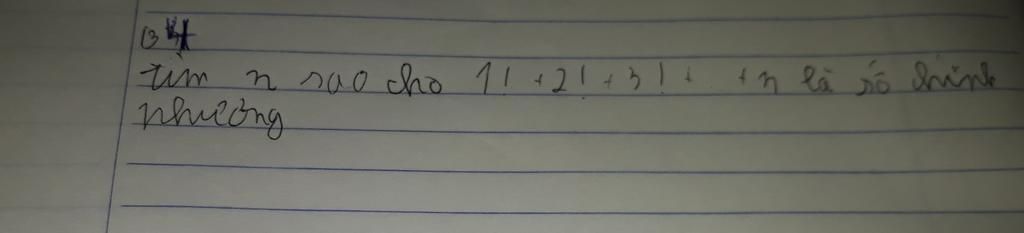 B4
tìm n sao cho 1! + 2! + 3! + +n là số chính
phương